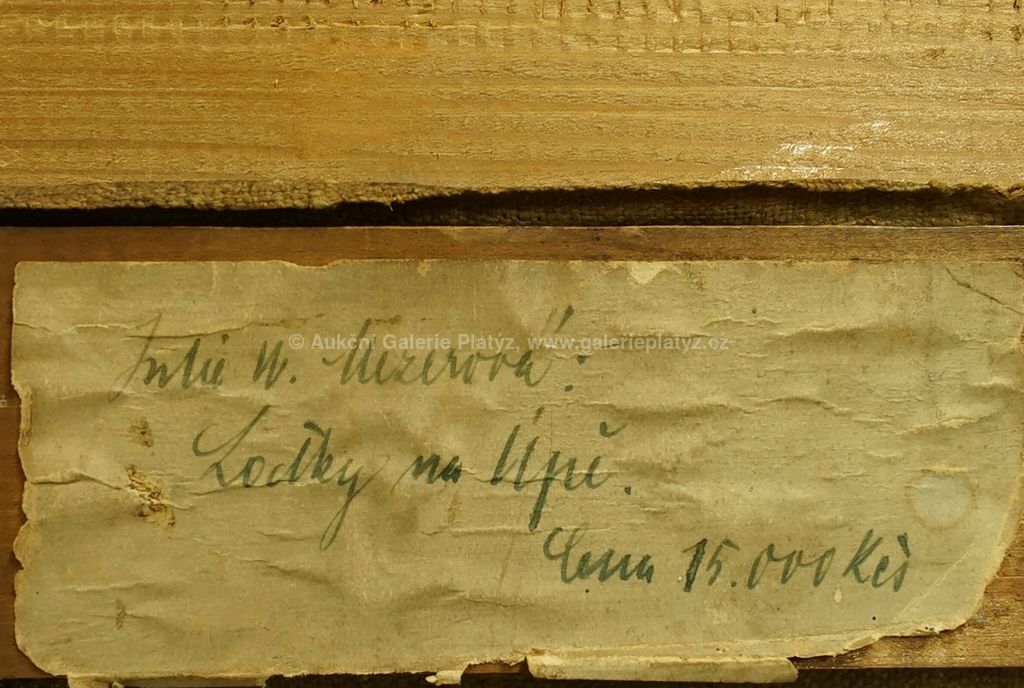 © Aukční Galerie Platýz, www.galerieplatyz.cz
Julie W. Mezerová:
Loďky na Úpě.
Cena 15.000 Kčs